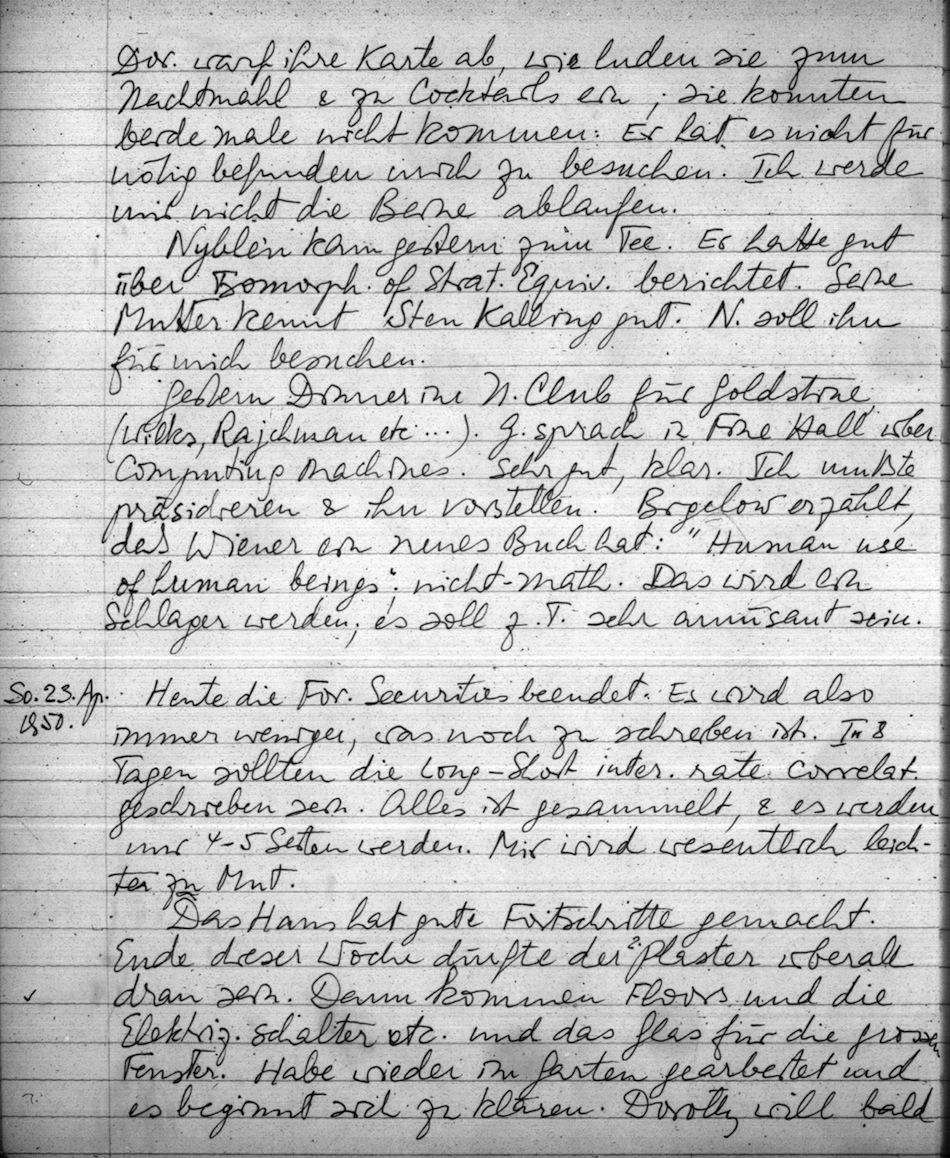 Dor. warf ihre Karte ab, wir luden sie zum
Nachtmahl & zu Cocktails ein; sie konnten
beide male nicht kommen: Er hat es nicht für
nötig befunden mich zu besuchen. Ich werde
mir nicht die Beine ablaufen.
Nyblén kam gestern zum Tee. Er hatte gut
über Isomorph. of Strat. Equiv. berichtet. Seine
Mutter kennt Sten Kalling gut. N. soll ihn
für mich besuchen.
Gestern Dinner im N. Club für Goldstine
(Wilks, Rajchman etc ...). G. sprach in Fine Hall über
Computing Machines. Sehr gut, klar. Ich musste
präsidieren & ihn vorstellen. Bigelow erzählt,
dass Wiener ein neues Buch hat: "Human use
of human beings"; nicht-math. Das wird ein
Schlager werden; es soll z. T. sehr amüsant sein.
So. 23. Ap. 1950. Heute die For. Securities beendet. Es wird also
immer weniger, was noch zu schreiben ist. In 8
Tagen sollten die Long-Short inter. rate correlat.
geschrieben sein. Alles ist gesammelt, & es werden
nur 4-5 Seiten werden. Mir wird wesentlich leich-
ter zu Mut.
Das Haus hat gute Fortschritte gemacht.
Ende dieser Woche dürfte der 2. Plaster überall
dran sein. Dann kommen Floors und die
Elektriz. schalter etc. und das Glas für die grossen
Fenster. Habe wieder im Garten gearbeitet und
es beginnt sich zu klären. Dorothy will bald